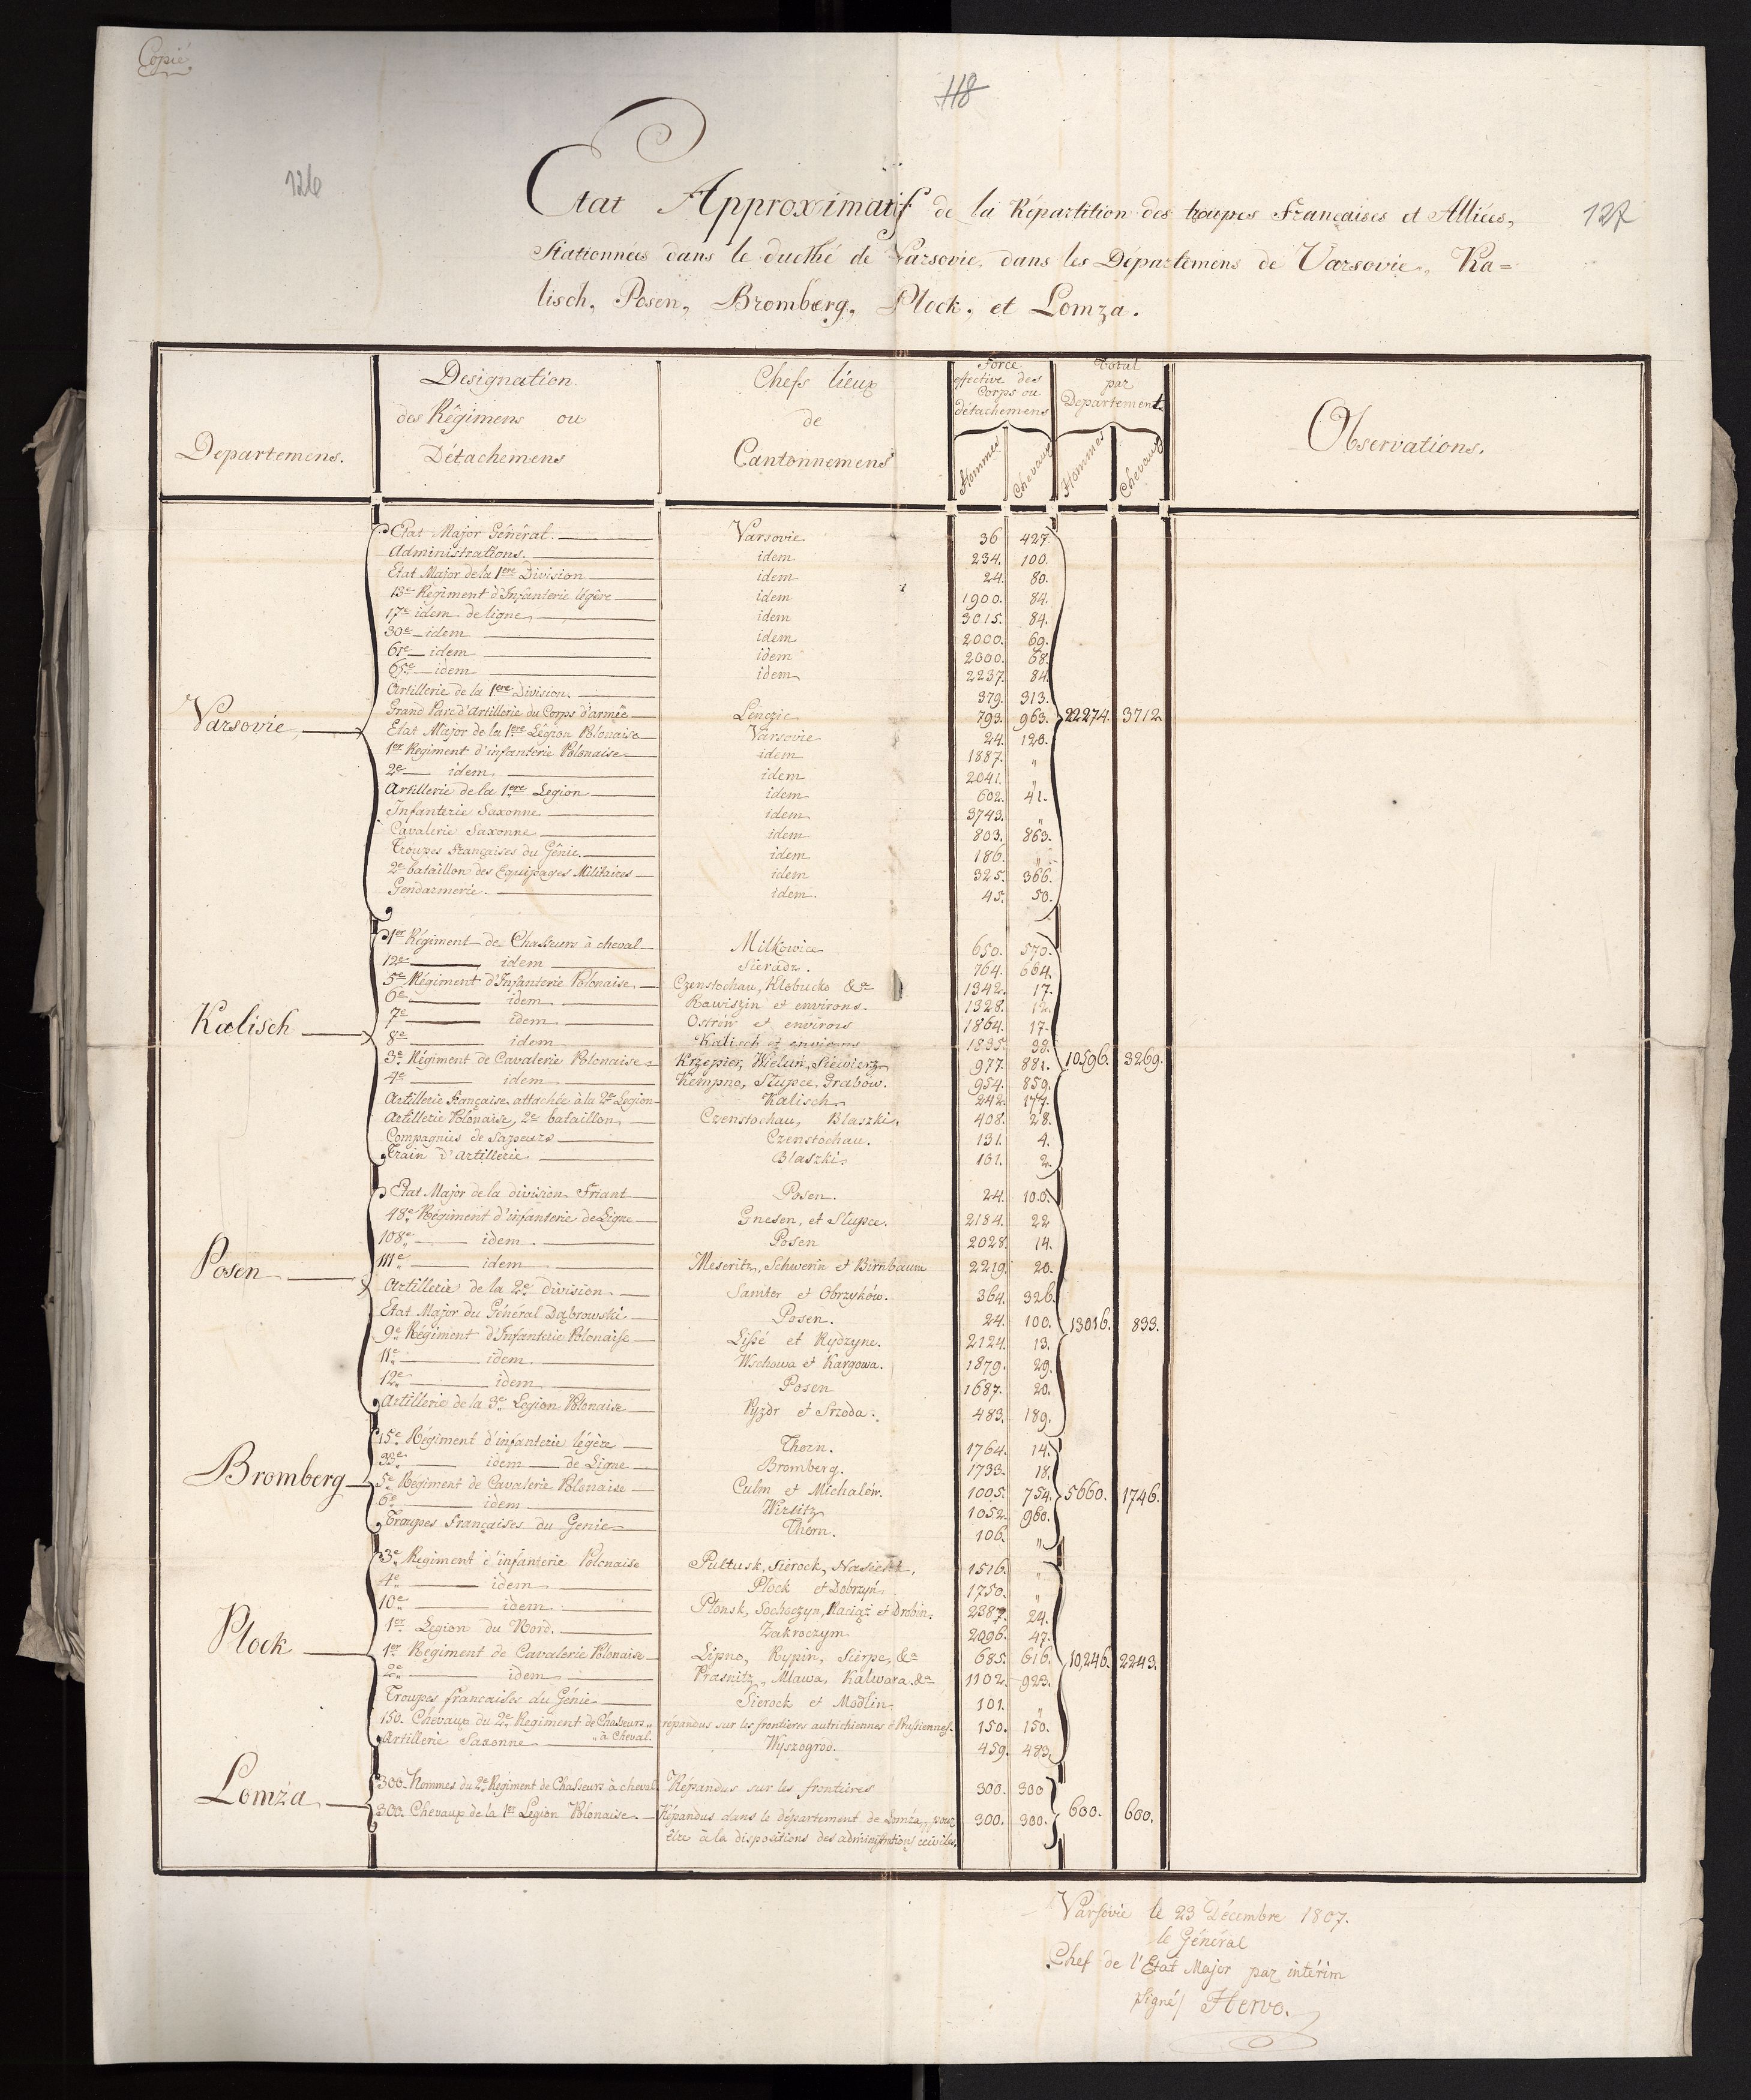 Copié
118
126
127
Etat Approximatif de la Répartition des troupes Françaises et Alliées,
Stationnées dans le duché de Varsovie, dans les Départemens de Varsovie, Ka=
lisch, Posen, Bromberg, Plock, et Lomza.
Departemens.
Designation
des Régimens ou
Détachemens
Chefs lieux
de
Cantonnemens
Force
effective des
Corps ou
détachemens
Hommes
Chevaux
Total
par
Departement
Hommes
Chevaux
Observations.
Varsovie
Etat Major Général. Varsovie 36 427.
Administrations. idem 234. 100.
Etat Major de la 1ere Division idem 24. 80.
13e Régiment d'Infanterie légère idem 1900. 84.
17e idem de ligne idem 3015. 84.
30e idem idem 2000. 69.
61e idem idem 2000. 68.
65e idem idem 2237. 84.
Artillerie de la 1ere Division. 379. 313.
Grand Parc d'Artillerie du Corps d'armée Lenczic 793. 963. 22274. 3712
Etat Major de la 1ere Légion Polonaise Varsovie 24. 120.
1er Regiment d'infanterie Polonaise idem 1887. "
2e idem idem 2041. "
Artillerie de la 1ere Legion idem 602. 41.
Infanterie Saxonne idem 3743. "
Cavalerie Saxonne idem 803. 863.
Troupes Françaises du Génie. idem 186. "
2e bataillon des Equipages Militaires idem 325. 366.
Gendarmerie. idem. 45. 50.
Kalisch
1er Régiment de Chasseurs à cheval Milkowice 650. 570.
12e idem Sieradz. 764. 664.
5e Régiment d'Infanterie Polonaise Czenstochau, Klobucko &a 1342. 17.
6e idem Rawiszin et environs. 1328. 12.
7e idem Ostrów et environs 1864. 17.
8e idem Kalisch et environs 1835. 39.
3e Régiment de Cavalerie Polonaise Krzepier, Wielun, Siewierz 977. 881. 10596. 3269.
4e idem Kempno, Slupce, Grabow. 954. 859.
Artillerie Française attachée à la 2e Legion Kalisch 242. 174.
Artillerie Polonaise, 2e bataillon Czenstochau, Blaszki. 408. 28.
Compagnies de Sapeurs Czenstochau. 131. 4.
Train d'artillerie Blaszki. 101. 2.
Posen
Etat Major de la division Friant Posen. 24. 100.
48e Régiment d'infanterie de Ligne Gnesen, et Slupce. 2184. 22
108e idem Posen 2028. 14.
111e idem Meseritz, Schwerin et Birnbaum 2219. 20.
Artillerie de la 2e division. Samter et Obrzyków. 364. 326.
Etat Major du Général Dąbrowski Posen. 24. 100. 13016. 833.
9e Régiment d'Infanterie Polonaise Lissé et Rydzyne. 2124. 13.
11e idem Wschowa et Kargowa. 1879. 29.
12e idem Posen 1687. 20.
Artillerie de la 3e Legion Polonaise Pyzdr et Srzoda. 483. 189.
Bromberg
15e Régiment d'infanterie légère Thorn. 1764. 14.
33e idem de Ligne Bromberg. 1733. 18.
5e Régiment de Cavalerie Polonaise Culm et Michalów. 1005. 754. 5660. 1746.
6e idem Wirsitz 1052. 960.
Troupes Françaises du Genie Thorn. 106. "
Plock
3e Regiment d'infanterie Polonaise Pultusk, Sierock, Nasielsk. 1516. "
4e idem Plock et Dobrzyń 1750. "
10e idem Plonsk, Sochoczyn, Raciąż et Drobin. 2387. 24.
1er Legion du Nord. Zakroczym 2096. 47.
1er Regiment de Cavalerie Polonaise Lipno, Rypin, Sierpc, &a 685. 616. 10,246. 2243.
2e idem Prasnitz, Mlawa, Kalwara. &a 1102. 923.
Troupes françaises du Génie Sierock et Modlin 101. "
150. Chevaux du 2e Regiment de Chasseurs répandus sur les frontieres autrichiennes & Prussiennes. 150. 150.
" à Cheval.
Artillerie Saxonne Wyszogrod. 459. 483.
Lomża
300. Hommes du 2e Régiment de Chasseurs à cheval Répandus sur les frontieres 300. 300
300. Chevaux de la 1er Legion Polonaise. Répandus dans le département de Lomża, pour 300. 300. 600. 600.
être à la dispositions des administrations civiles.
Varsovie le 23 Décembre 1807.
le Général
Chef de l'Etat Major par intérim
signé/ Hervo.